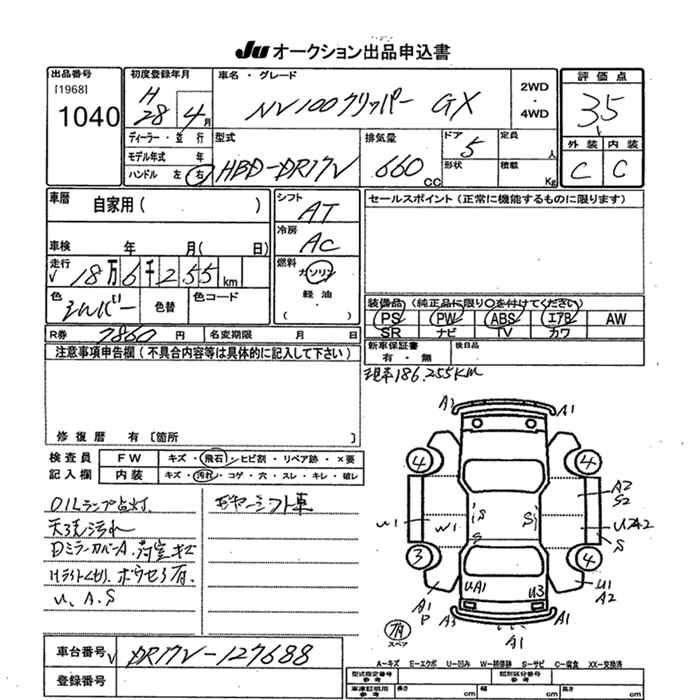 Ju オークション出品申込書
出品番号
[1968]
1040
初度登録年月
H 28 年 4月
車名 ・ グレード
NV100クリッパー GX
2WD
・
4WD
評価点
3.5
外装 内装
C C
ディーラー ・ 並行
モデル年式 年
ハンドル 左 右
型式
HBD-DR17V
排気量
660 cc
ドア 5
形状
定員 人
積載 Kg
車歴 自家用( )
車検 年 月( 日)
走行
18万6千255km
色 シルバー
色替
色コード
シフト
AT
冷房
AC
燃料
ガソリン
軽油
( )
セールスポイント (正常に機能するものに限ります)
装備品 (純正品に限り○を付けてください)
PS PW ABS エアB AW
SR ナビ TV カワ
R券 7860 円 名変期限 月 日
新車保証書 有 ・ 無
後日品
現車186,255KM
注意事項申告欄 (不具合内容等は具体的に記入して下さい)
修復歴 有 [箇所 ]
検査員記入欄
FW キズ ・ 飛石 ・ ヒビ割 ・ リペア跡 ・ ×要
内装 キズ ・ 汚れ ・ コゲ ・ 穴 ・ スレ ・ キレ ・ 破レ
OILランプ点灯.
天張汚れ
DミラーカバーA. 荷室キズ
Hライトくもり. ボウセイ有.
U、A、S
5ギヤーシフト車
A1 A1
4 4
A2
S2
U1 W1 S S U2A2
S S
3 4
UA1 U3
U1
A2
A1
P
A3 A1
A1
有
スペア
車台番号 DR17V-127688
登録番号
A-キズ E-エクボ U-凹み W-補修跡 S-サビ C-腐食 XX-交換済
型式指定番号
参考
類別区分番号
参考
車庫証明用
参考
長さ cm 幅 cm 高さ cm